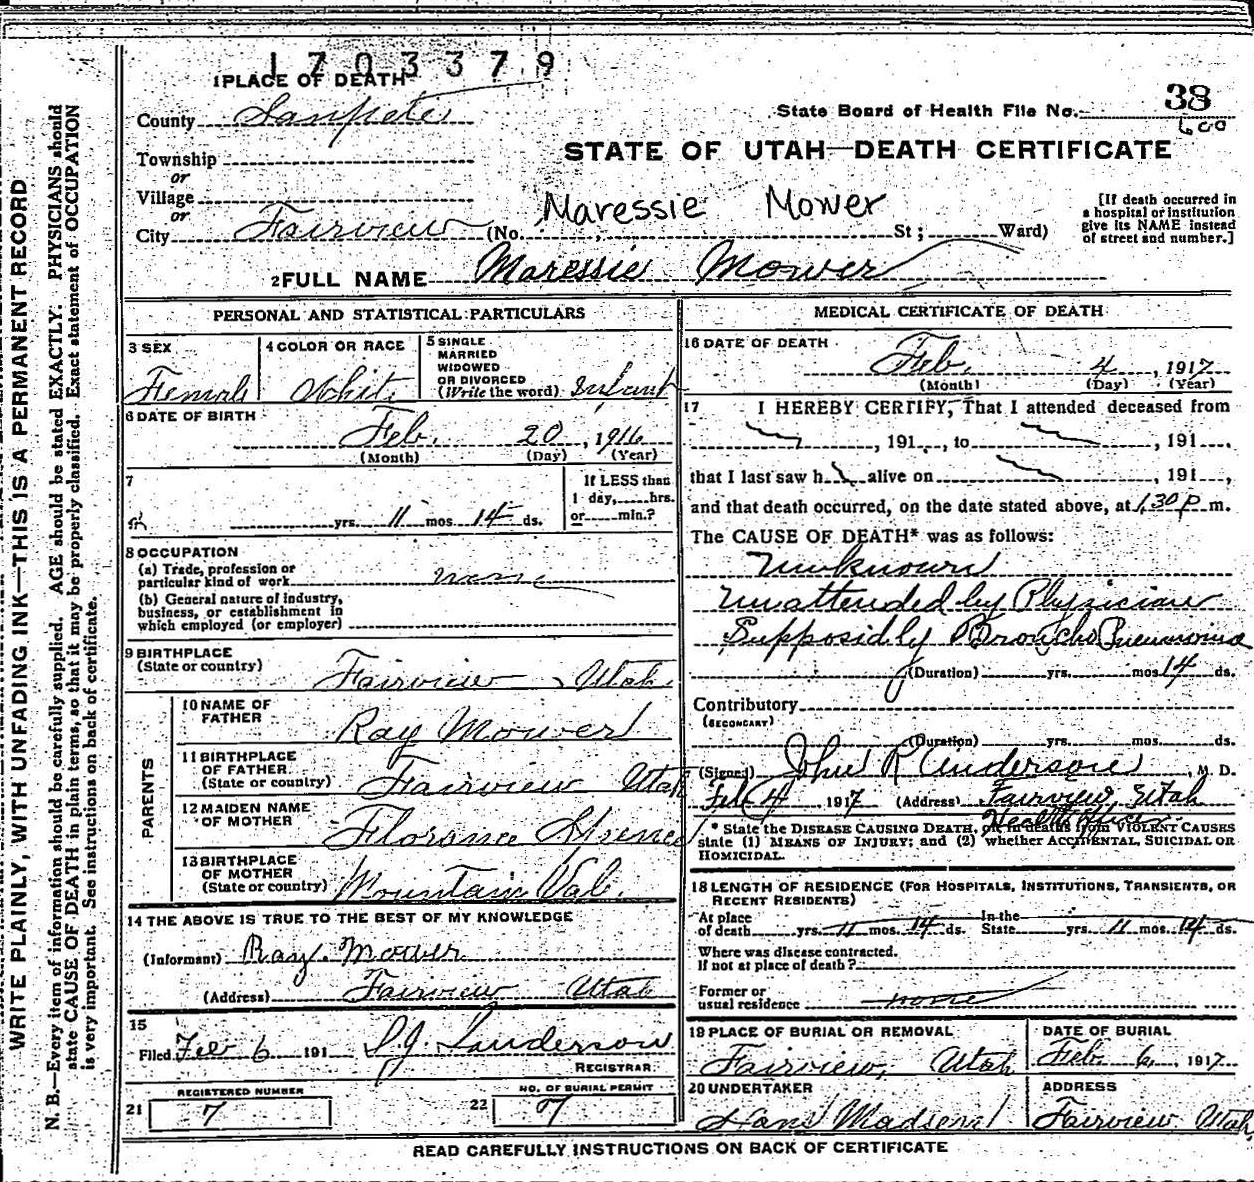 1703379
1 PLACE OF DEATH
County Sanpete
State Board of Health File No. 38
600
Township
or
Village
or
STATE OF UTAH—DEATH CERTIFICATE
Maressie Mower
City Fairview (No. St; Ward)
[If death occurred in
a hospital or institution
give its NAME instead
of street and number.]
2 FULL NAME Maressie Mower
PERSONAL AND STATISTICAL PARTICULARS
3 SEX
Female
4 COLOR OR RACE
White
5 SINGLE
MARRIED
WIDOWED
OR DIVORCED
(Write the word) Infant
6 DATE OF BIRTH
Feb. 20, 1916
(Month) (Day) (Year)
7
yrs. 11 mos. 14 ds.
If LESS than
1 day, hrs.
or min.?
8 OCCUPATION
(a) Trade, profession or
particular kind of work none
(b) General nature of industry,
business, or establishment in
which employed (or employer)
9 BIRTHPLACE
(State or country) Fairview, Utah.
PARENTS
10 NAME OF
FATHER Ray Mower
11 BIRTHPLACE
OF FATHER
(State or country) Fairview Utah
12 MAIDEN NAME
OF MOTHER Florence
13 BIRTHPLACE
OF MOTHER
(State or country) Mountain
14 THE ABOVE IS TRUE TO THE BEST OF MY KNOWLEDGE
(Informant) Ray Mower
(Address) Fairview Utah
15
Filed Feb 6 191 Sanderson
REGISTRAR
REGISTERED NUMBER
21 7
NO. OF BURIAL PERMIT
22 7
MEDICAL CERTIFICATE OF DEATH
16 DATE OF DEATH
Feb. 4, 1917
(Month) (Day) (Year)
17 I HEREBY CERTIFY, That I attended deceased from
, 191 , to , 191 ,
that I last saw h alive on , 191 ,
and that death occurred, on the date stated above, at 1,30 P m.
The CAUSE OF DEATH* was as follows:
Unknown
Unattended by Physician
Supposidly Broncho Pneumonia
(Duration) yrs. mos. 14 ds.
Contributory
(SECONDARY)
(Duration) yrs. mos. ds.
(Signed) John R Anderson, M. D.
Feb 4 1917 (Address) Fairview, Utah
Health Officer
* State the DISEASE CAUSING DEATH, or in deaths from VIOLENT CAUSES
state (1) MEANS OF INJURY; and (2) whether ACCIDENTAL, SUICIDAL OR
HOMICIDAL.
18 LENGTH OF RESIDENCE (FOR HOSPITALS, INSTITUTIONS, TRANSIENTS, OR
RECENT RESIDENTS)
At place
of death yrs. 11 mos. 14 ds.
In the
State yrs. 11 mos. 14 ds.
Where was disease contracted.
If not at place of death?
Former or
usual residence none
19 PLACE OF BURIAL OR REMOVAL
Fairview, Utah
DATE OF BURIAL
Feb. 6, 1917
20 UNDERTAKER
Hans Madsen
ADDRESS
Fairview, Utah,
READ CAREFULLY INSTRUCTIONS ON BACK OF CERTIFICATE
WRITE PLAINLY, WITH UNFADING INK—THIS IS A PERMANENT RECORD
N. B.—Every item of information should be carefully supplied. AGE should be stated EXACTLY. PHYSICIANS should
state CAUSE OF DEATH in plain terms, so that it may be properly classified. Exact statement of OCCUPATION
is very important. See instructions on back of certificate.